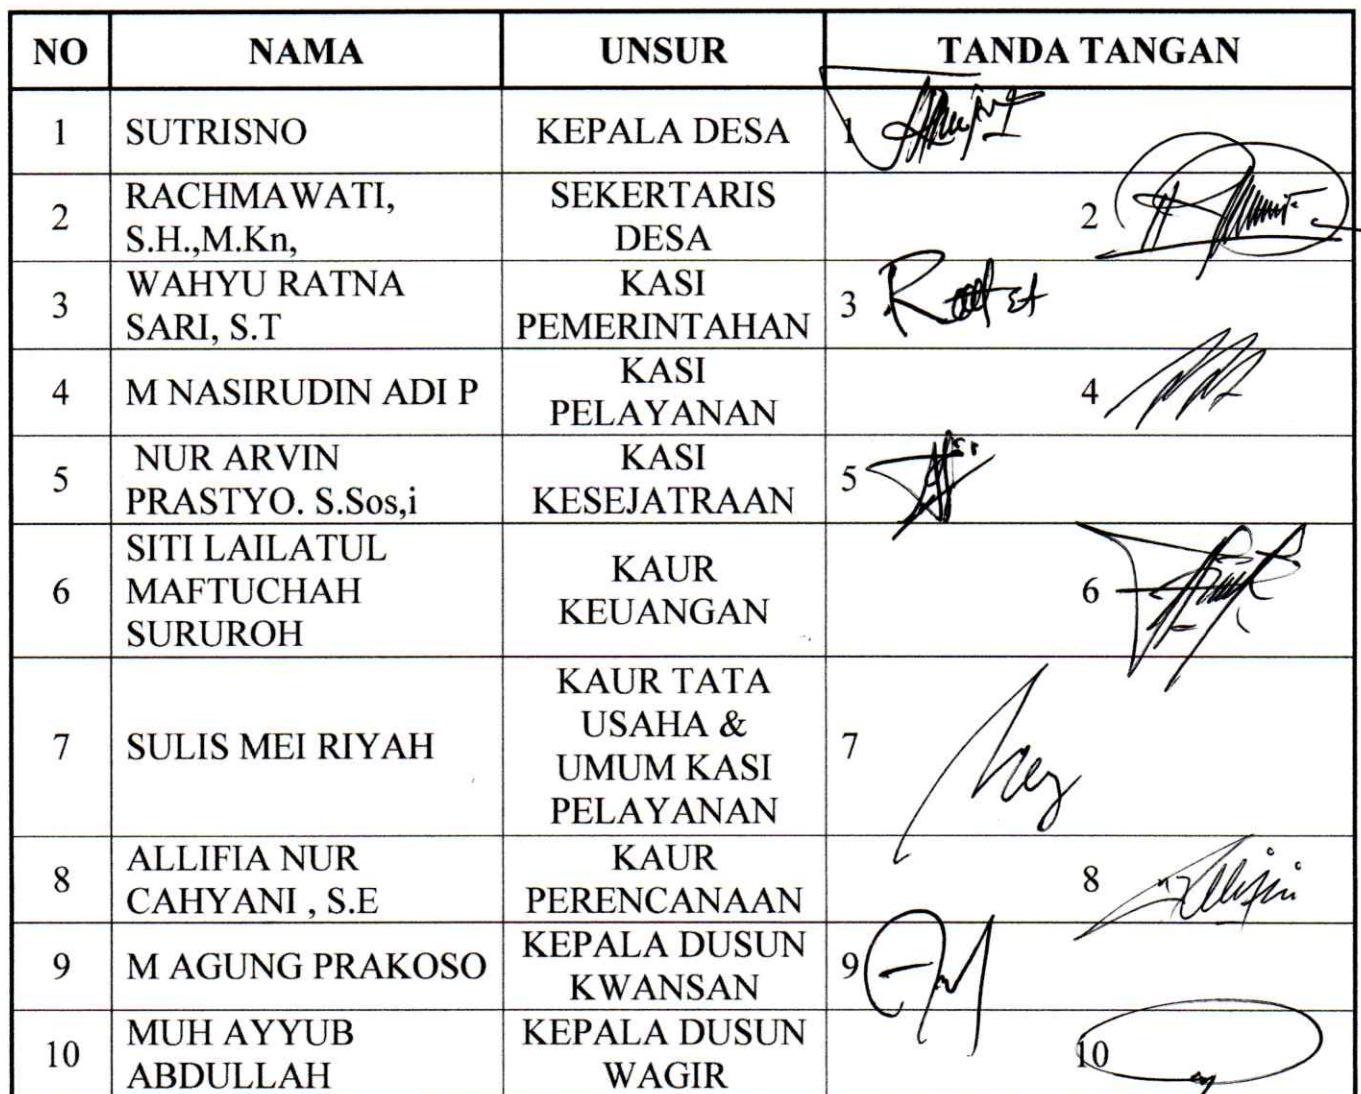 NO NAMA UNSUR TANDA TANGAN
1 SUTRISNO KEPALA DESA 1
2 RACHMAWATI, S.H.,M.Kn, SEKERTARIS DESA 2
3 WAHYU RATNA SARI, S.T KASI PEMERINTAHAN 3
4 M NASIRUDIN ADI P KASI PELAYANAN 4
5 NUR ARVIN PRASTYO. S.Sos,i KASI KESEJATRAAN 5
6 SITI LAILATUL MAFTUCHAH SURUROH KAUR KEUANGAN 6
7 SULIS MEI RIYAH KAUR TATA USAHA & UMUM KASI PELAYANAN 7
8 ALLIFIA NUR CAHYANI , S.E KAUR PERENCANAAN 8
9 M AGUNG PRAKOSO KEPALA DUSUN KWANSAN 9
10 MUH AYYUB ABDULLAH KEPALA DUSUN WAGIR 10